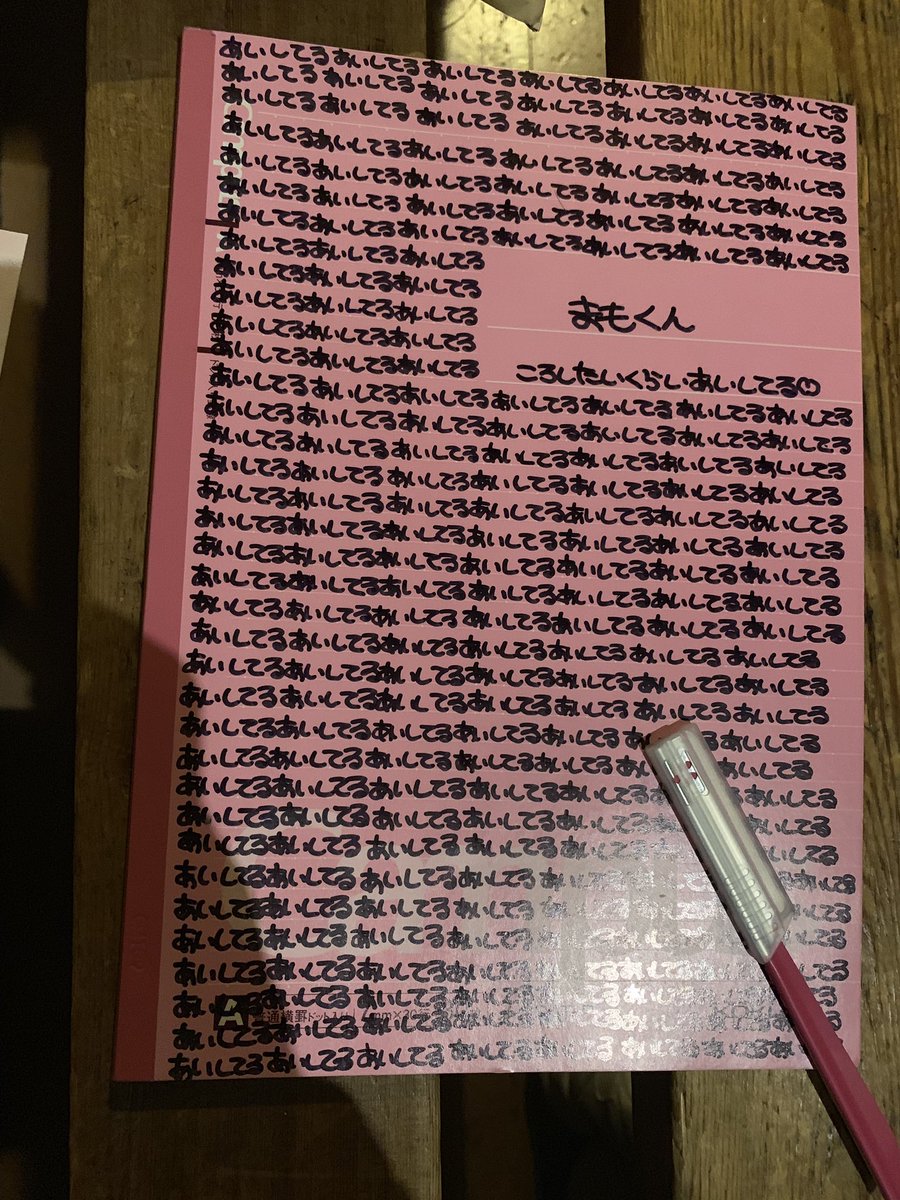 あいしてるあいしてるあいしてるあいしてるあいしてるあいしてるあいしてる
あいしてるあいしてるあいしてるあいしてるあいしてるあいしてるあいしてる
あいしてるあいしてるあいしてるあいしてるあいしてるあいしてるあいしてる
あいしてるあいしてるあいしてるあいしてるあいしてるあいしてるあいしてる
あいしてるあいしてるあいしてるあいしてるあいしてるあいしてるあいしてる
あいしてるあいしてるあいしてるあいしてるあいしてるあいしてるあいしてる
あいしてるあいしてるあいしてるあいしてるあいしてるあいしてるあいしてる
あいしてるあいしてるあいしてる
あいしてるあいしてるあいしてる
あいしてるあいしてるあいしてる
あいしてるあいしてるあいしてる
あいしてるあいしてるあいしてる
まもくん
ころしたいくらいあいしてる
あいしてるあいしてるあいしてるあいしてるあいしてるあいしてるあいしてる
あいしてるあいしてるあいしてるあいしてるあいしてるあいしてるあいしてる
あいしてるあいしてるあいしてるあいしてるあいしてるあいしてるあいしてる
あいしてるあいしてるあいしてるあいしてるあいしてるあいしてるあいしてる
あいしてるあいしてるあいしてるあいしてるあいしてるあいしてるあいしてる
あいしてるあいしてるあいしてるあいしてるあいしてるあいしてるあいしてる
あいしてるあいしてるあいしてるあいしてるあいしてるあいしてるあいしてる
あいしてるあいしてるあいしてるあいしてるあいしてるあいしてるあいしてる
あいしてるあいしてるあいしてるあいしてるあいしてるあいしてるあいしてる
あいしてるあいしてるあいしてるあいしてるあいしてるあいしてるあいしてる
あいしてるあいしてるあいしてるあいしてるあいしてるあいしてるあいしてる
あいしてるあいしてるあいしてるあいしてるあいしてるあいしてるあいしてる
あいしてるあいしてるあいしてるあいしてるあいしてるあいしてる
あいしてるあいしてるあいしてるあいしてるあいしてるあいしてる
あいしてるあいしてるあいしてるあいしてるあいしてるあいしてる
あいしてるあいしてるあいしてるあいしてるあいしてるあいしてる
あいしてるあいしてるあいしてるあいしてるあいしてる
あいしてるあいしてるあいしてるあいしてるあいしてるあいしてる
あいしてるあいしてるあいしてるあいしてるあいしてるあいしてる
あいしてるあいしてるあいしてるあいしてるあいしてるあいしてる
あいしてるあいしてるあいしてるあいしてるあいしてるあいしてるあいしてる
あいしてるあいしてるあいしてるあいしてるあいしてるあいしてるあいしてる
あいしてるあいしてるあいしてるあいしてるあいしてるあいしてる
あいしてるあいしてるあいしてるあいしてるあいしてるあいしてる